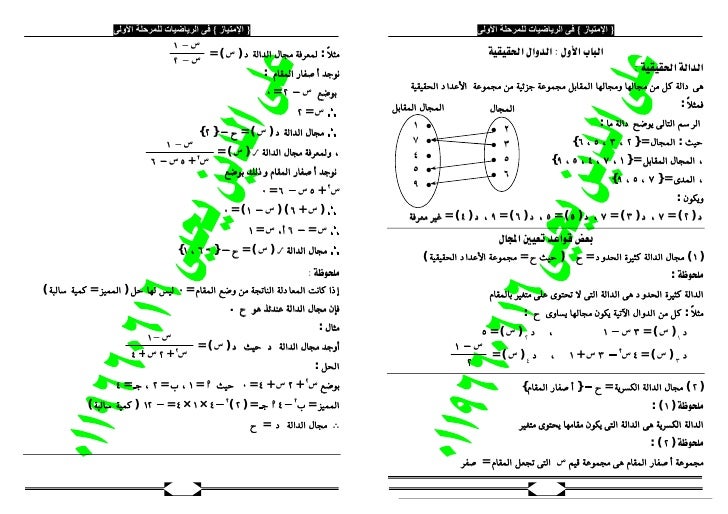 { الإمتياز } فى الرياضيات للمرحلة الأولى
الباب الأول : الدوال الحقيقية
الدالة الحقيقية :
هى دالة كل من مجالها ومجالها المقابل مجموعة جزئية من مجموعة الأعداد الحقيقية
فمثلاً :
الرسم التالى يوضح دالة ما :
حيث : المجال={٢ ، ٣ ، ٥ ، ٦}
، المجال المقابل={١ ، ٧ ، ٤ ، ٥ ، ٩}
، المدى={٧ ، ٥ ، ٩}
ويكون :
المجال
المجال المقابل
٢
٣
٥
٦
١
٧
٤
٥
٩
د(٢)=٧ ، د(٣)=٧ ، د(٥)=٥ ، د(٦)=٩ ، د(٤)=غير معرفة
بعض قواعد تعيين المجال
(١) مجال الدالة كثيرة الحدود=ح ( حيث ح=مجموعة الأعداد الحقيقية )
ملحوظة :
الدالة كثيرة الحدود هى الدالة التى لا تحتوى على متغير بالمقام
مثلاً : كل من الدوال الآتية يكون مجالها يساوى ح :
د١(س)=٣س−١ ، د٢(س)=٥
د٣(س)=٤س٢−٣س+١ ، د٤(س)=س−١/٢
(٢) مجال الدالة الكسرية=ح−{أصفار المقام}
ملحوظة (١) :
الدالة الكسرية هى الدالة التى يكون مقامها يحتوى متغير
ملحوظة (٢) :
مجموعة أصفار المقام هى مجموعة قيم س التى تجعل المقام= صفر
{ الإمتياز } فى الرياضيات للمرحلة الأولى
مثلاً : لمعرفة مجال الدالة د(س)=س−١/س−٢
نوجد أصفار المقام :
بوضع س−٢=٠
∴ س=٢
∴ مجال الدالة د(س)=ح−{٢}
، ولمعرفة مجال الدالة ر(س)=س−١/س٢+٥س−٦
نوجد أصفار المقام وذلك بوضع
س٢+٥س−٦=٠
∴ (س+٦)(س−١)=٠
∴ س=−٦ ، س=١
∴ مجال الدالة ر(س)=ح−{−٦ ، ١}
ملحوظة :
إذا كانت المعادلة الناتجة من وضع المقام=٠ ليس لها حل( المميز= كمية سالبة )
فإن مجال الدالة عندئذ هو ح ٠
مثال :
أوجد مجال الدالة د حيث د(س)=س−١/س٢+٢س+٤
الحل :
بوضع س٢+٢س+٤=٠ حيث أ=١ ، ب=٢ ، جـ=٤
المميز=ب٢−٤أجـ=(٢)٢−٤×١×٤=−١٢ ( كمية سالبة )
∴ مجال الدالة د = ح